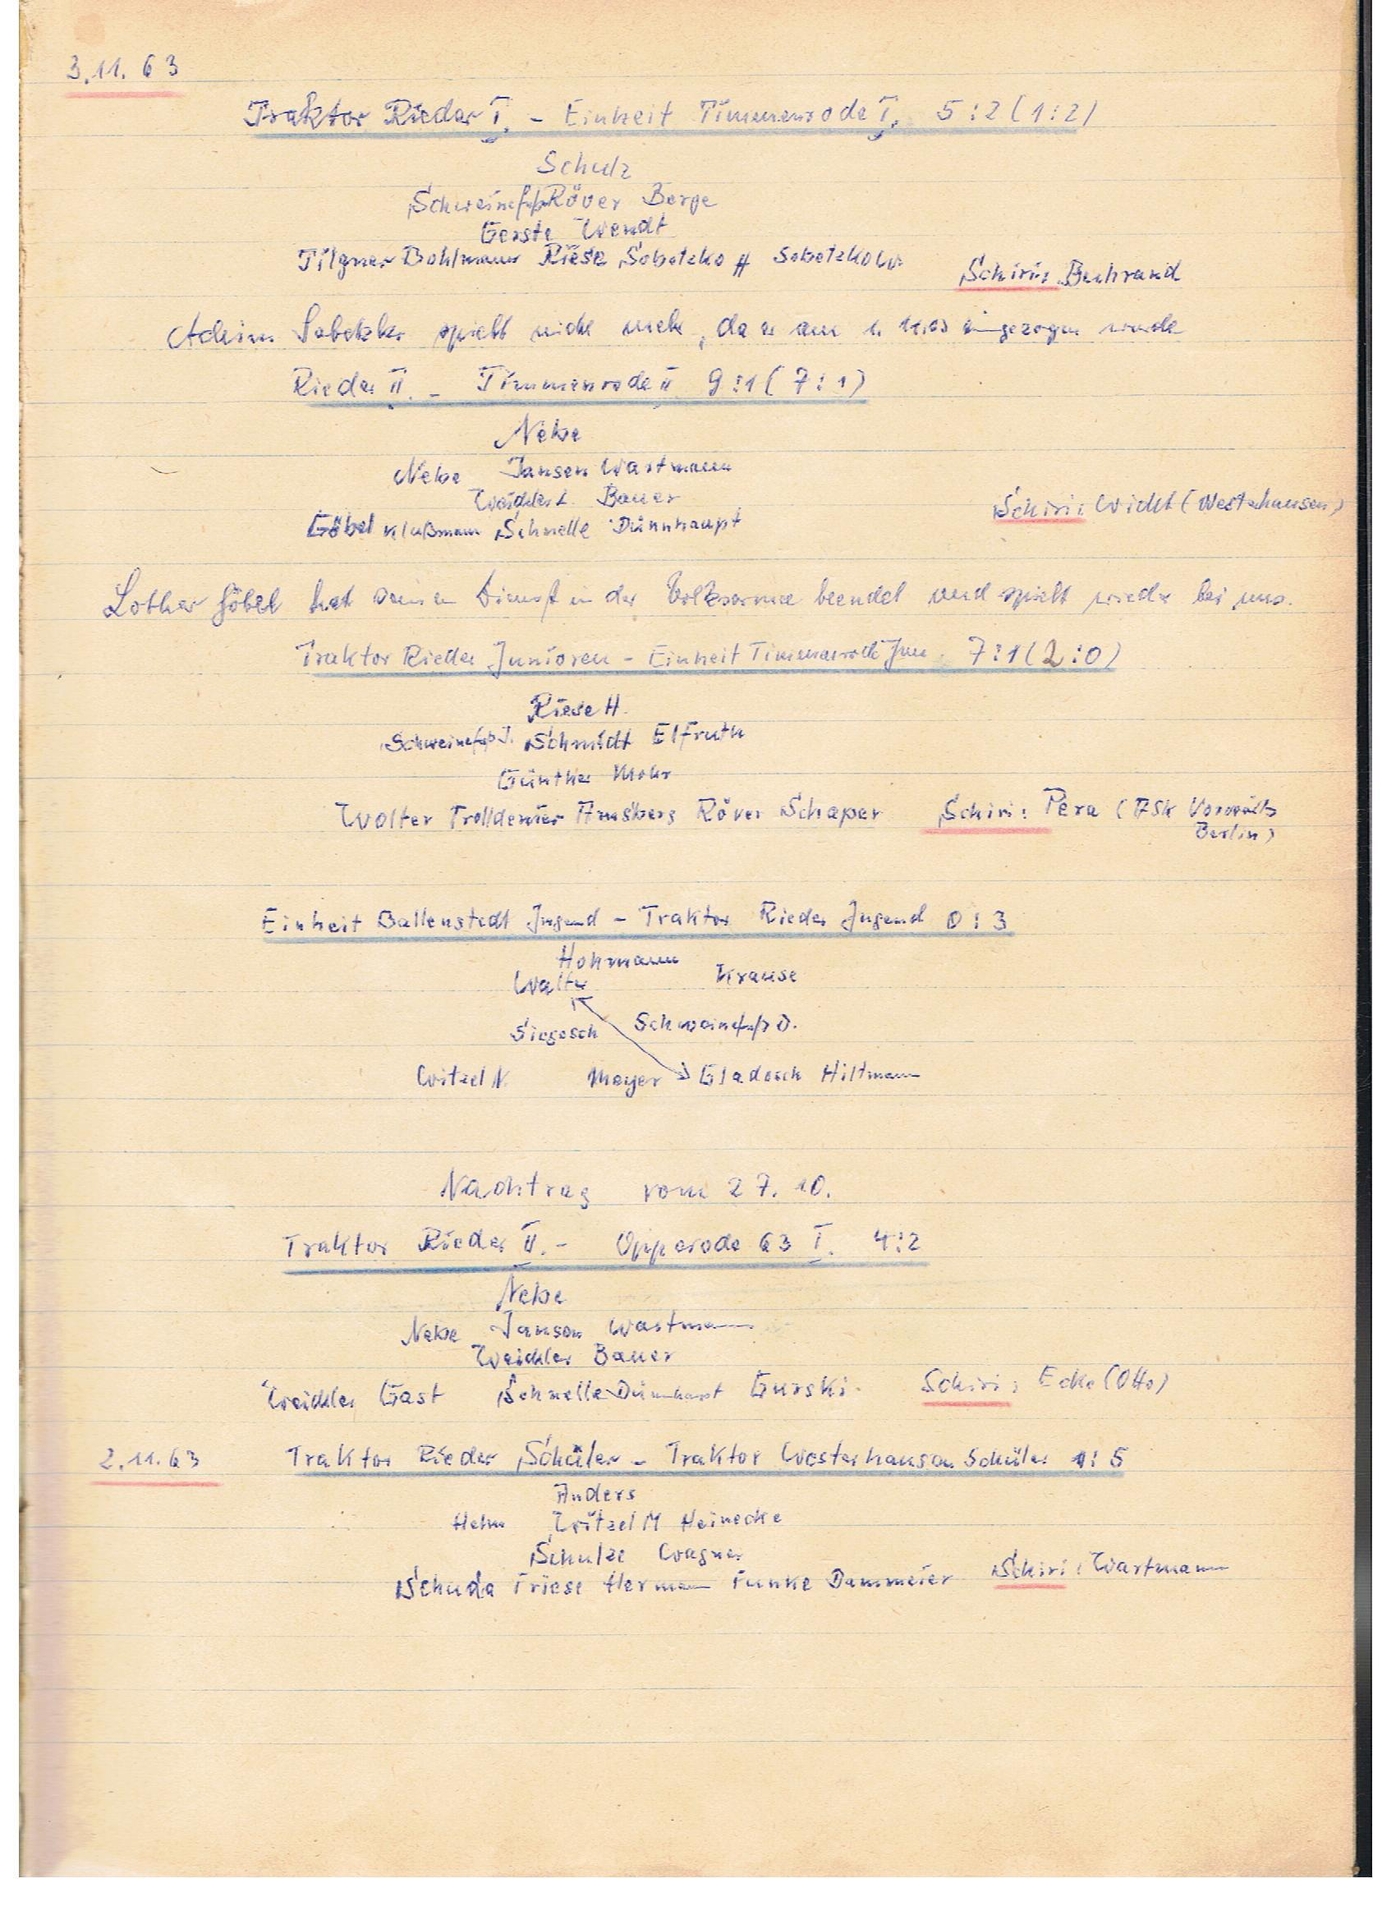 3.11.63
Traktor Rieder I. - Einheit Timmenrode I. 5:2 (1:2)
Schulz
Schweinef. Röver Berge
Gerste Wendt
Tilgner Bohlmann Riese Sobotzko H Sobotzko W.
Schiri: Buchrand
Achim Sobotzko spielt nicht mehr, da er am 1.11.63 eingezogen wurde
Rieder II. - Timmenrode II 9:1 (7:1)
Nebe
Nebe Jansen Wartmann
Weichler L. Bauer
Schiri: Wicht (Westerhausen)
Göbel Klußmann Schnelle Dünnhaupt
Lothar Göbel hat seinen Dienst in der Volksarmee beendet und spielt wieder bei uns.
Traktor Rieder Junioren - Einheit Timmenrode Jun. 7:1 (2:0)
Riese H.
Schweinef. J. Schmidt Elfruth
Günther Mohr
Wolter Trolldenier Amsberg Röver Schaper Schiri: Pera (ASK Vorwärts
Berlin)
Einheit Ballenstedt Jugend - Traktor Rieder Jugend 0:3
Hohmann
Walter Krause
Siegesch Schweinef. D.
Witzel N. Meyer Gladosch Hiltmann
Nachtrag vom 27.10.
Traktor Rieder II. - Opperode 63 I. 4:2
Nebe
Nebe Janson Wartmann
Weichler Bauer
Weichler Gast Schnelle Dünnhaupt Gurski. Schiri: Ecke (Otto)
2.11.63 Traktor Rieder Schüler - Traktor Westerhausen Schüler 1:5
Anders
Helm Witzel M Heinecke
Schulze Wagner
Schuda Friese Hermann Funke Dammeier Schiri: Wartmann